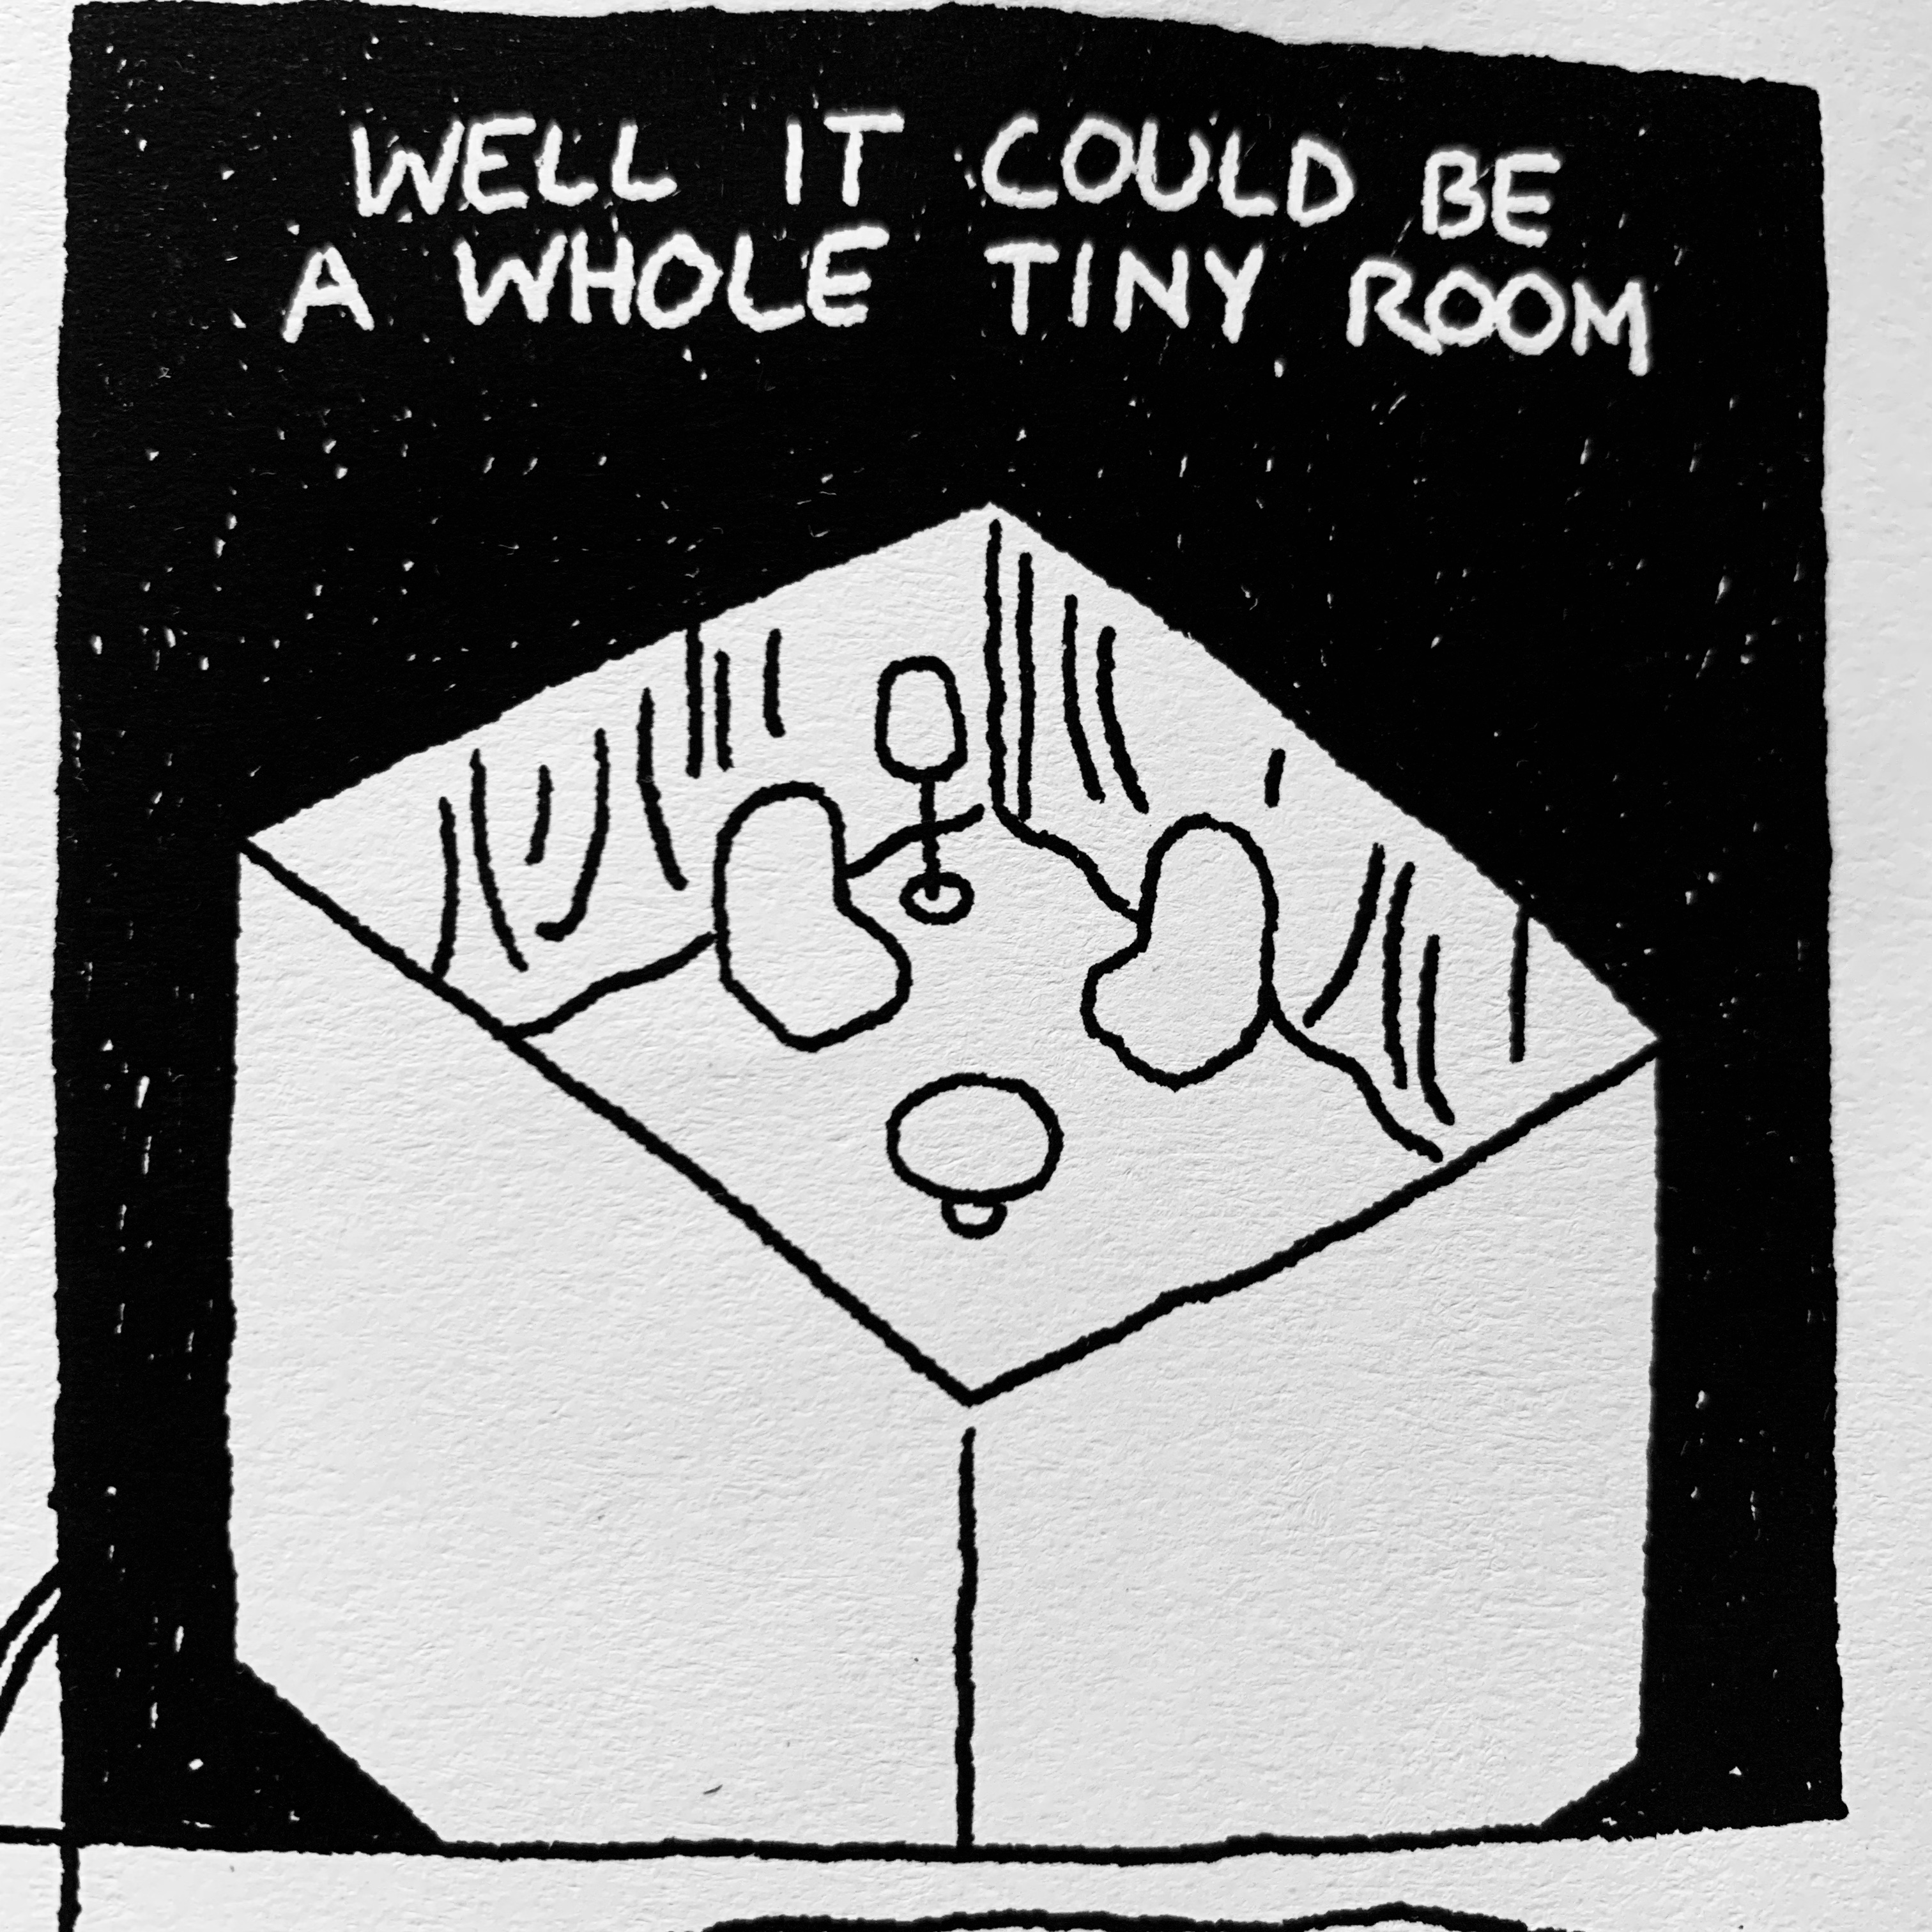 WELL IT COULD BE
A WHOLE TINY ROOM